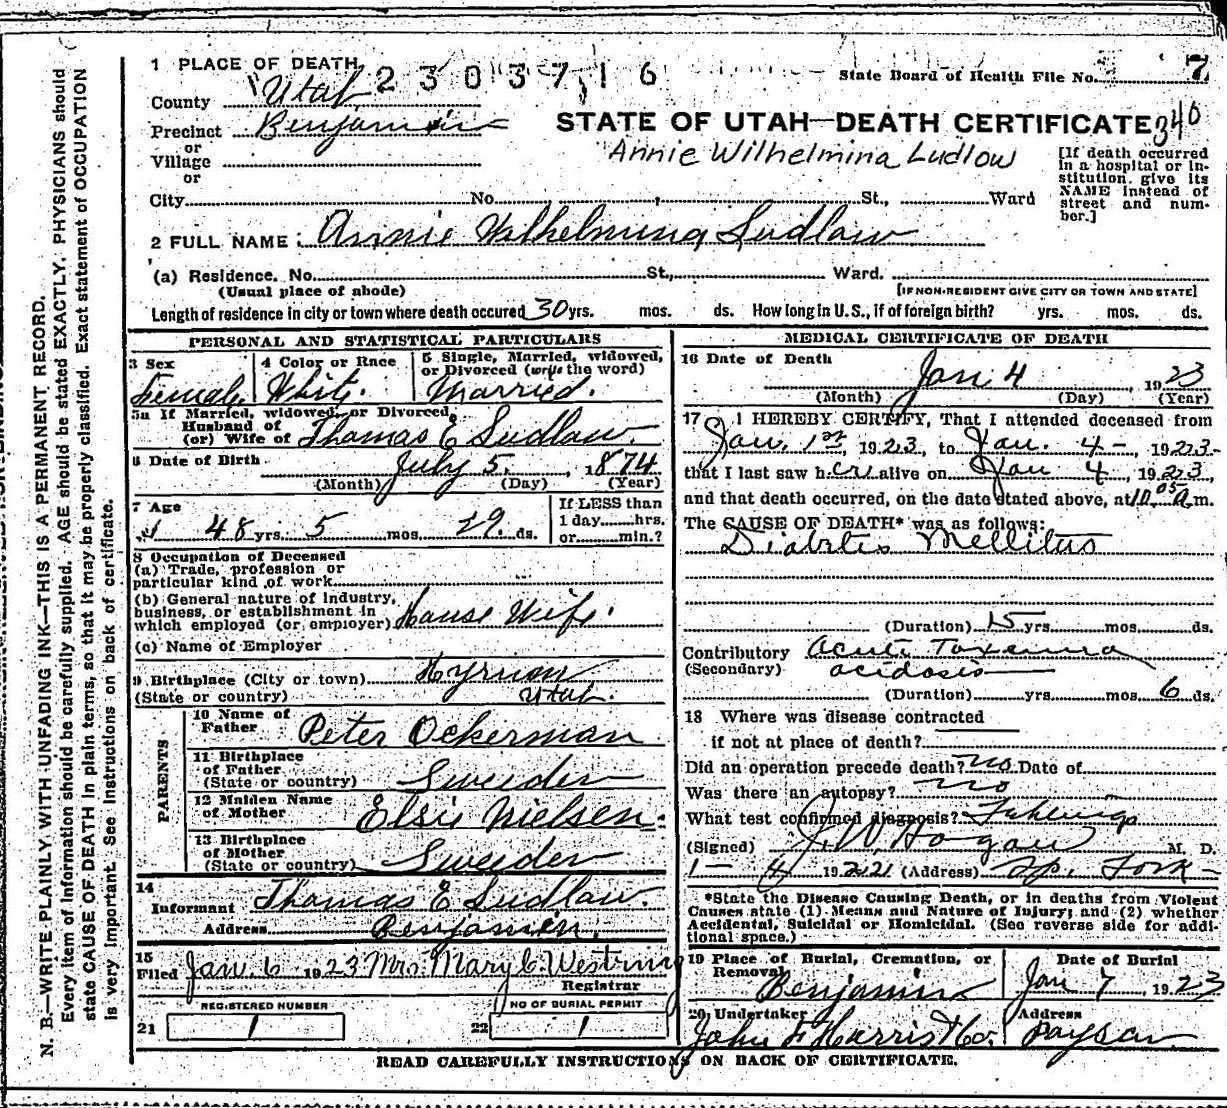 N. B.—WRITE PLAINLY WITH UNFADING INK—THIS IS A PERMANENT RECORD.
Every item of information should be carefully supplied. AGE should be stated EXACTLY. PHYSICIANS should
state CAUSE OF DEATH in plain terms, so that it may be properly classified. Exact statement of OCCUPATION
is very important. See instructions on back of certificate.
1 PLACE OF DEATH 2303716 State Board of Health File No. 7
County Utah
340
Precinct Benjamin STATE OF UTAH—DEATH CERTIFICATE
or
Village
Annie Wilhelmina Ludlow
or
[If death occurred
in a hospital or in-
stitution, give its
NAME instead of
street and num-
ber.]
City No. St., Ward
2 FULL NAME: Annie Wilhelmina Ludlow
(a) Residence. No. St., Ward.
(Usual place of abode) [IF NON-RESIDENT GIVE CITY OR TOWN AND STATE]
Length of residence in city or town where death occured 30 yrs. mos. ds. How long in U.S., if of foreign birth? yrs. mos. ds.
PERSONAL AND STATISTICAL PARTICULARS
3 Sex 4 Color or Race 5 Single, Married, widowed,
or Divorced (write the word)
Female. White. Married.
5a If Married, widowed, or Divorced,
Husband of
(or) Wife of Thomas E Ludlow.
6 Date of Birth July 5. , 1874
(Month) (Day) (Year)
7 Age If LESS than
48 yrs. 5 mos. 29. ds. 1 day hrs.
or min.?
8 Occupation of Deceased
(a) Trade, profession or
particular kind of work
(b) General nature of Industry,
business, or establishment in
which employed (or employer) House Wife.
(c) Name of Employer
9 Birthplace (City or town) Hyrum
(State or country) Utah.
PARENTS
10 Name of
Father Peter Ockerman
11 Birthplace
of Father
(State or country) Sweeden
12 Maiden Name
of Mother Elsie Nielsen.
13 Birthplace
of Mother
(State or country) Sweeden
14
Informant Thomas E Ludlow.
Address Benjamin.
15
Filed Jan 6 1923 Mrs. Mary C. Westring
Registrar
REGISTERED NUMBER NO OF BURIAL PERMIT
21 1 22 1
MEDICAL CERTIFICATE OF DEATH
16 Date of Death
Jan 4 , 1923
(Month) (Day) (Year)
17 I HEREBY CERTIFY, That I attended deceased from
Jan. 1st, 1923, to Jan. 4-, 1923-
that I last saw her alive on Jan 4, 1923,
and that death occurred, on the date stated above, at 10.05 a.m.
The CAUSE OF DEATH* was as follows:
Diabetes Mellitus
(Duration) 15 yrs. mos. ds.
Contributory Acute Toxemia
(Secondary) acidosis
(Duration) yrs. mos. 6 ds.
18 Where was disease contracted
if not at place of death?
Did an operation precede death? No Date of
Was there an autopsy? no
What test confirmed diagnosis? Fehlings
(Signed) J. W. Hogan M. D.
1- 4 1921 (Address) Sp. Fork-
*State the Disease Causing Death, or in deaths from Violent
Causes state (1) Means and Nature of Injury; and (2) whether
Accidental, Suicidal or Homicidal. (See reverse side for addi-
tional space.)
19 Place of Burial, Cremation, or Date of Burial
Removal Benjamin Jan 7 1923
20 Undertaker Address
John F Harris & Co. Payson
READ CAREFULLY INSTRUCTIONS ON BACK OF CERTIFICATE.